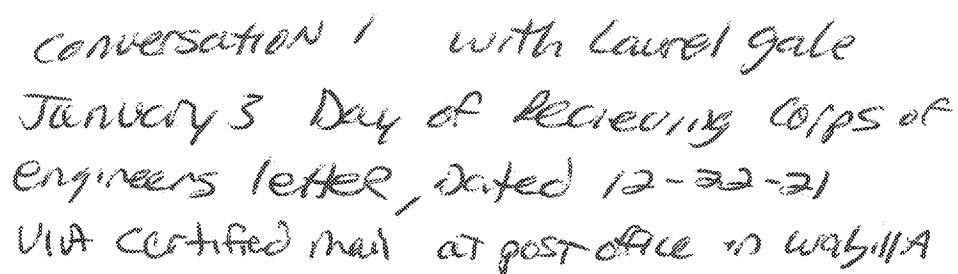 conversation 1 with Laurel gale
January 3 Day of Recieving Corps of
engineers letter, Dated 12-22-21
VIA certified mail at post office in wabillA